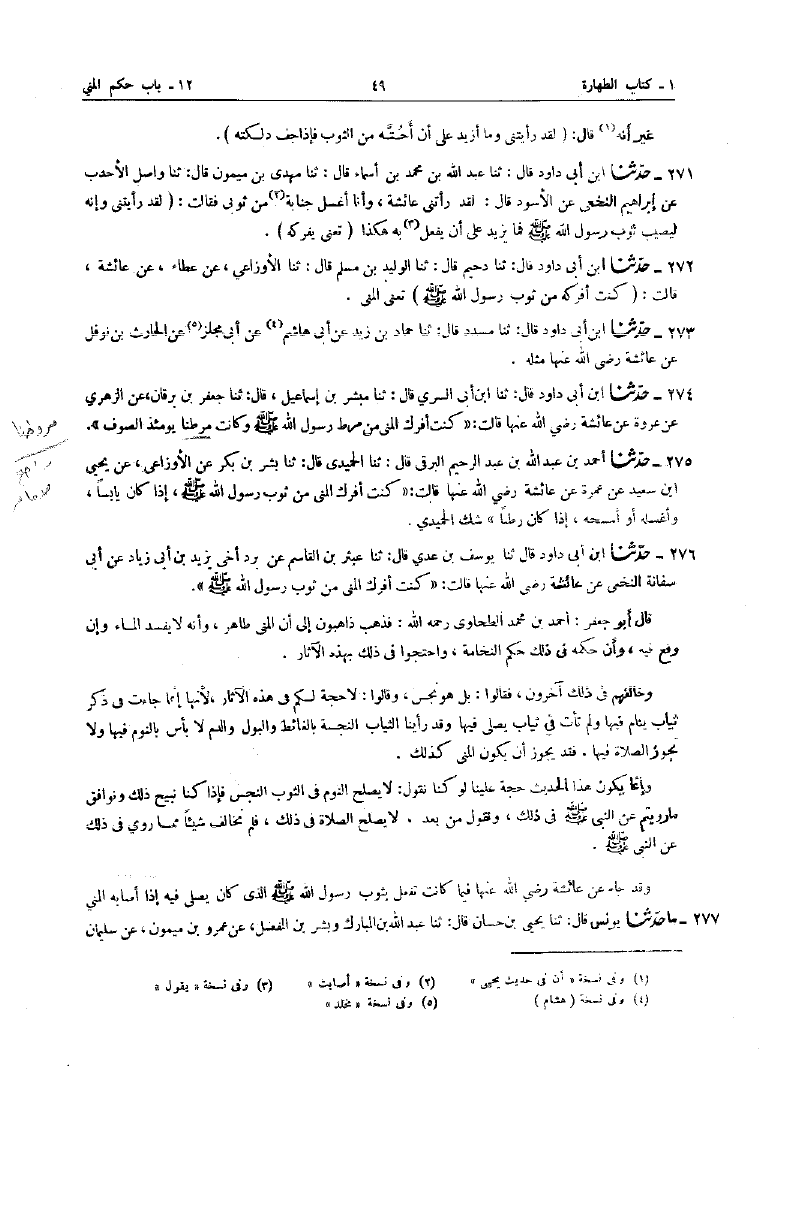 ١ - كتاب الطهارة ٤٩ ١٢ - باب حكم المني
غير أنه (١) قال: ( لقد رأيتنى وما أزيد على أن أَحُتَّه من الثوب فإذا جف دلكته ) .
٢٧١ - حدّثنا ابن أبى داود قال : ثنا عبد الله بن محمد بن أسماء قال : ثنا مهدى بن ميمون قال: ثنا واصل الأحدب
عن إبراهيم النخعى عن الأسود قال : لقد رأتنى عائشة ، وأنا أغسل جنابة (٢) من ثوبى فقالت : ( لقد رأيتنى وإنه
ليصيب ثوب رسول الله ﷺ فما يزيد على أن يفعل (٣) به هكذا ( تعنى يفركه ) .
٢٧٢ - حدّثنا ابن أبى داود قال: ثنا دحيم قال : ثنا الوليد بن مسلم قال : ثنا الأوزاعي ، عن عطاء ، عن عائشة ،
قالت : ( كنت أفركه من ثوب رسول الله ﷺ ) تعنى المنى .
٢٧٣ - حدّثنا ابن أبى داود قال: ثنا مسدد قال: ثنا حماد بن زيد عن أبى هاشم (٤) عن أبى مجلز (٥) عن الحارث بن نوفل
عن عائشة رضى الله عنها مثله .
٢٧٤ - حدّثنا ابن أبى داود قال: ثنا ابن أبى السري قال : ثنا مبشر بن إسماعيل ، قال: ثنا جعفر بن برقان، عن الزهري
عن عروة عن عائشة رضي الله عنها قالت: « كنت أفرك المنى من مرط رسول الله ﷺ وكانت مرطنا يومئذ الصوف ».
٢٧٥ - حدّثنا أحمد بن عبد الله بن عبد الرحيم البرقى قال : ثنا الحميدى قال: ثنا بشر بن بكر عن الأوزاعى ، عن يحيى
ابن سعيد عن عمرة عن عائشة رضي الله عنها قالت: « كنت أفرك المنى من ثوب رسول الله ﷺ ، إذا كان يابساً ،
وأغسله أو أمسحه ، إذا كان رطباً » شك الحميدي .
٢٧٦ - حدّثنا ابن أبى داود قال ثنا يوسف بن عدي قال: ثنا عبثر بن القاسم عن برد أخى يزيد بن أبى زياد عن أبي
سفانة النخعى عن عائشة رضى الله عنها قالت: « كنت أفرك المنى من ثوب رسول الله ﷺ ».
قال أبو جعفر : أحمد بن محمد الطحاوى رحمه الله : فذهب ذاهبون إلى أن المنى طاهر ، وأنه لا يفسد المـاء وإن
وقع فيه ، وأن حكمه فى ذلك حكم النخامة ، واحتجوا فى ذلك بهذه الآثار .
وخالفهم فى ذلك آخرون ، فقالوا : بل هو نجس ، وقالوا : لا حجة لـكم فى هذه الآثار ، لأنها إنما جاءت فى ذكر
ثياب ينام فيها ولم تأت في ثياب يصلى فيها وقد رأينا الثياب النجسة بالغائط والبول والدم لا بأس بالنوم فيها ولا
تجوز الصلاة فيها . فقد يجوز أن يكون المنى كذلك .
وإنما يكون هذا الحديث حجة علينا لو كنا نقول: لا يصلح النوم فى الثوب النجس فإذا كنا نبيح ذلك ونوافق
ما رويتم عن النبى ﷺ فى ذلك ، ونقول من بعد . لا يصلح الصلاة فى ذلك ، فلم نخالف شيئاً ممـا روي فى ذلك
عن النبى ﷺ .
وقد جاء عن عائشة رضي الله عنها فيما كانت تفعل بثوب رسول الله ﷺ الذى كان يصلى فيه إذا أصابه المني
٢٧٧ - ما حدّثنا يونس قال: ثنا يحيى بن حسان قال: ثنا عبد الله بن المبارك وبشر بن الفضل، عن عمرو بن ميمون ، عن سليمان
(١) وفى نسخة « أن فى حديث يحيى » (٢) وفى نسخة « أصابت » (٣) وفى نسخة « يقول »
(٤) وفى نسخة ( هشام ) (٥) وفى نسخة « مخلد »